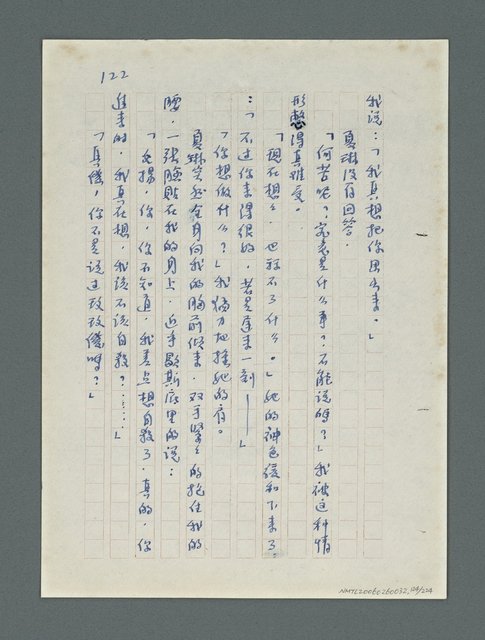 122
我說:「我真想把你思出来。」
夏琳沒有回答.
「何苦呢?究竟是什么事?.不能說嗎?」我被这种情
形憋得真难受。
「現在想想.也算不了什么。」她的神色緩和下來了.
:「不过你来得很好.若是遲来一刻——」
「你想做什么?」我猛力把捶她的肩。
夏琳突然全身向我的胸前倾来.双手緊緊的抱住我的
腰.一張臉貼在我的身上.近乎歇斯底里的說:
「兆揚.你.你不知道.我差点想自殺了.真的.你
進来的.我真在想.我該不該自殺?……」
「真傻.你不是說过玫玫傻嗎?」
NMTL20060260032,124/224